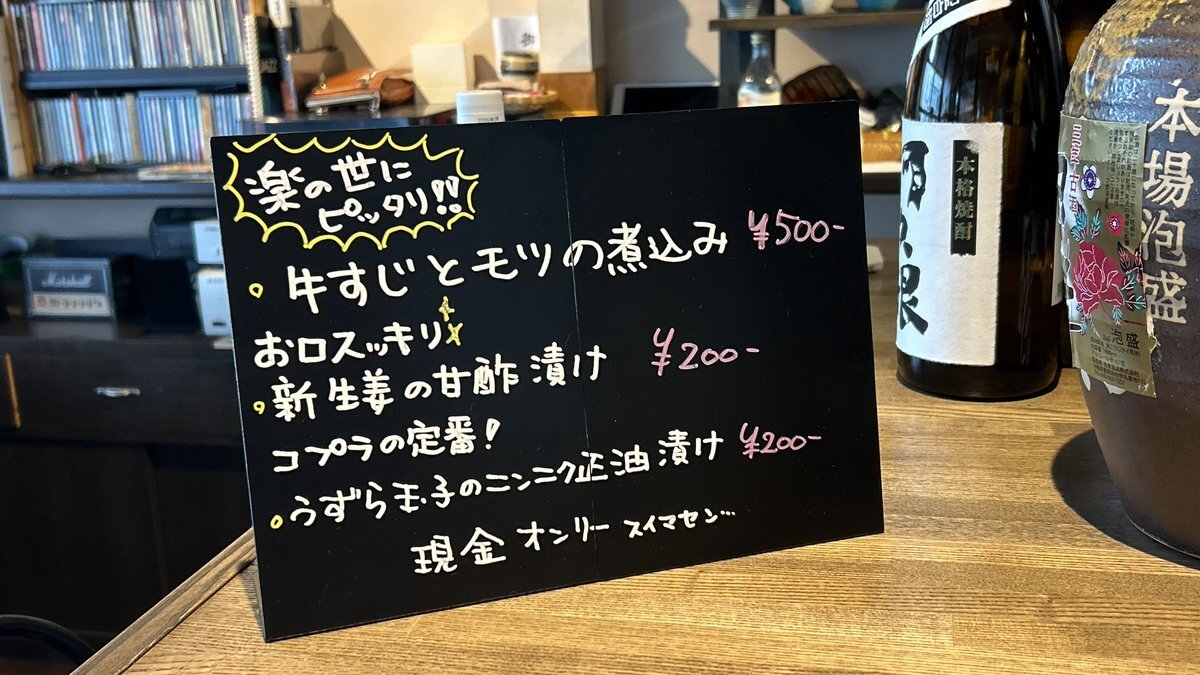 楽の世に
ピッタリ!!
・牛すじとモツの煮込み ¥500-
お口スッキリ
・新生姜の甘酢漬け ¥200-
コプラの定番!
・うずら玉子のニンニク正油漬け ¥200-
現金オンリー スイマセン…
本格焼酎
本場泡盛
古酒
泡盛
Marshall
JAZZ